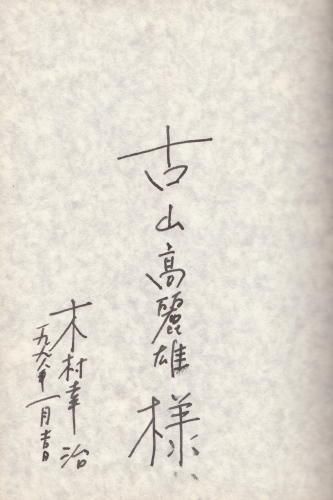 古山高麗雄様
木村幸治
一九九八年一月吉日